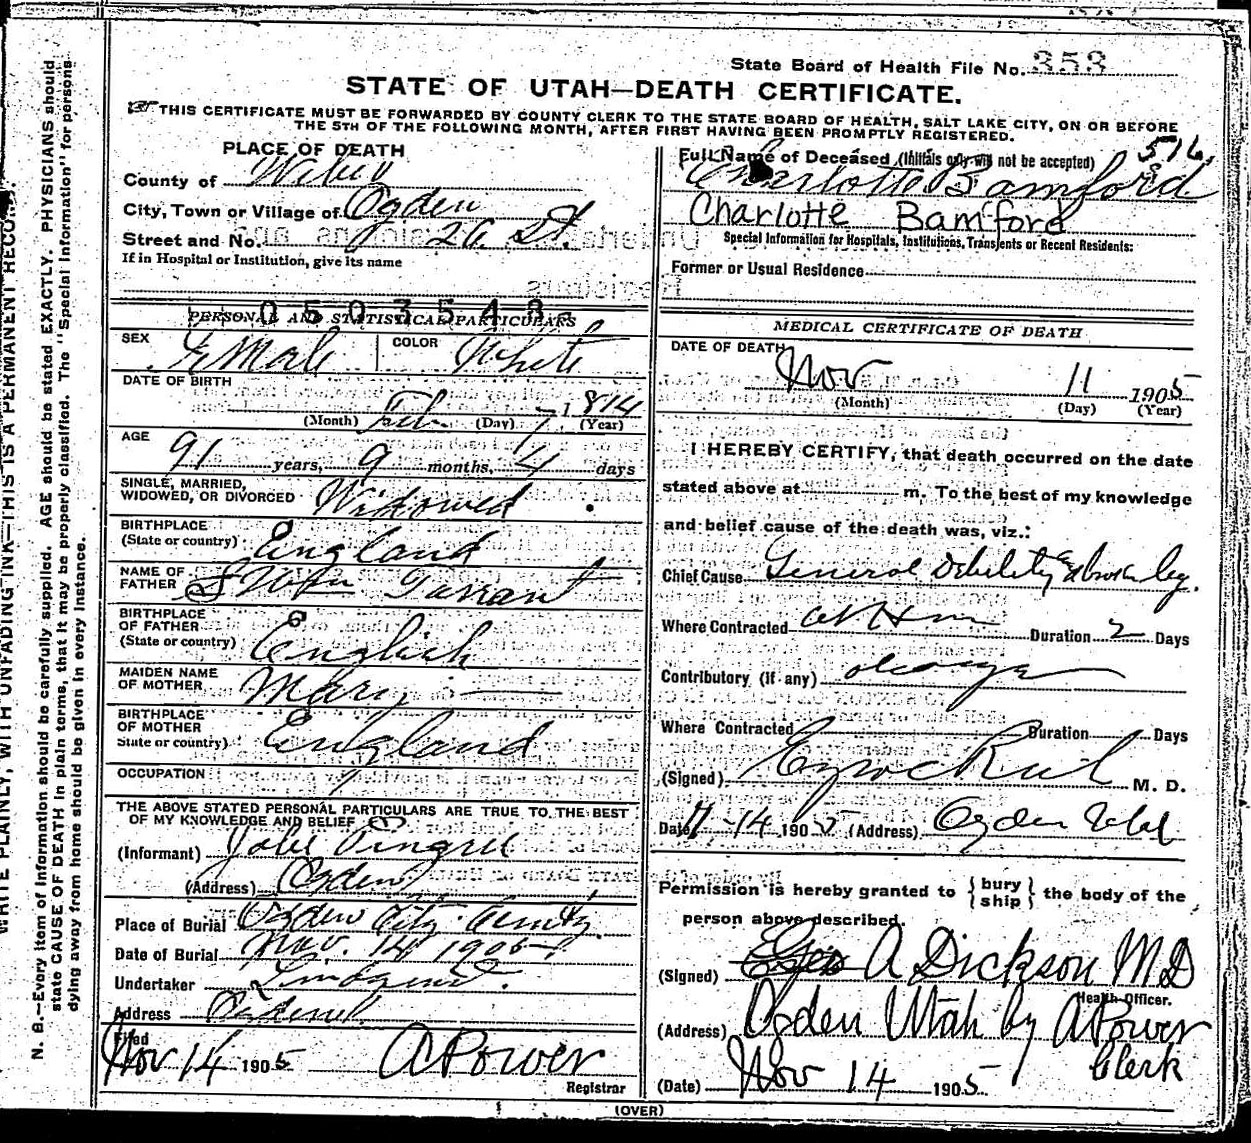 State Board of Health File No. 353
STATE OF UTAH—DEATH CERTIFICATE.
THIS CERTIFICATE MUST BE FORWARDED BY COUNTY CLERK TO THE STATE BOARD OF HEALTH, SALT LAKE CITY, ON OR BEFORE
THE 5TH OF THE FOLLOWING MONTH, AFTER FIRST HAVING BEEN PROMPTLY REGISTERED.
PLACE OF DEATH
County of Weber
City, Town or Village of Ogden
Street and No. 26 St.
If in Hospital or Institution, give its name
0503543
PERSONAL AND STATISTICAL PARTICULARS
SEX Female COLOR White
DATE OF BIRTH
(Month) Feb (Day) 7 1814 (Year)
AGE 91 years, 9 months, 4 days
SINGLE, MARRIED,
WIDOWED, OR DIVORCED Widowed
BIRTHPLACE
(State or country) England
NAME OF
FATHER
BIRTHPLACE
OF FATHER
(State or country) English
MAIDEN NAME
OF MOTHER Mary
BIRTHPLACE
OF MOTHER
State or country) England
OCCUPATION
THE ABOVE STATED PERSONAL PARTICULARS ARE TRUE TO THE BEST
OF MY KNOWLEDGE AND BELIEF
(Informant) Pingree
(Address) Ogden
Place of Burial Ogden City
Date of Burial Nov. 14 1905
Undertaker
Address
Filed
Nov 14 1905 A Power
Registrar
516
Full Name of Deceased (Initials only will not be accepted)
Charlotte Bamford
Charlotte Bamford
Special Information for Hospitals, Institutions, Transients or Recent Residents:
Former or Usual Residence
MEDICAL CERTIFICATE OF DEATH
DATE OF DEATH
Nov 11 1905
(Month) (Day) (Year)
I HEREBY CERTIFY, that death occurred on the date
stated above at m. To the best of my knowledge
and belief cause of the death was, viz.:
Chief Cause General Debility & broken leg.
Where Contracted at Home Duration 2 Days
Contributory (if any) old age
Where Contracted Duration Days
(Signed) M. D.
Date 11-14 1905 (Address) Ogden Utah
Permission is hereby granted to {bury ship} the body of the
person above described.
(Signed) A Dickson MD
Health Officer.
(Address) Ogden Utah by A Power
Clerk
(Date) Nov 14 1905
(OVER)
WRITE PLAINLY, WITH UNFADING INK—THIS IS A PERMANENT RECORD.
N. B.—Every item of information should be carefully supplied. AGE should be stated EXACTLY. PHYSICIANS should
state CAUSE OF DEATH in plain terms, that it may be properly classified. The "Special Information" for persons
dying away from home should be given in every instance.